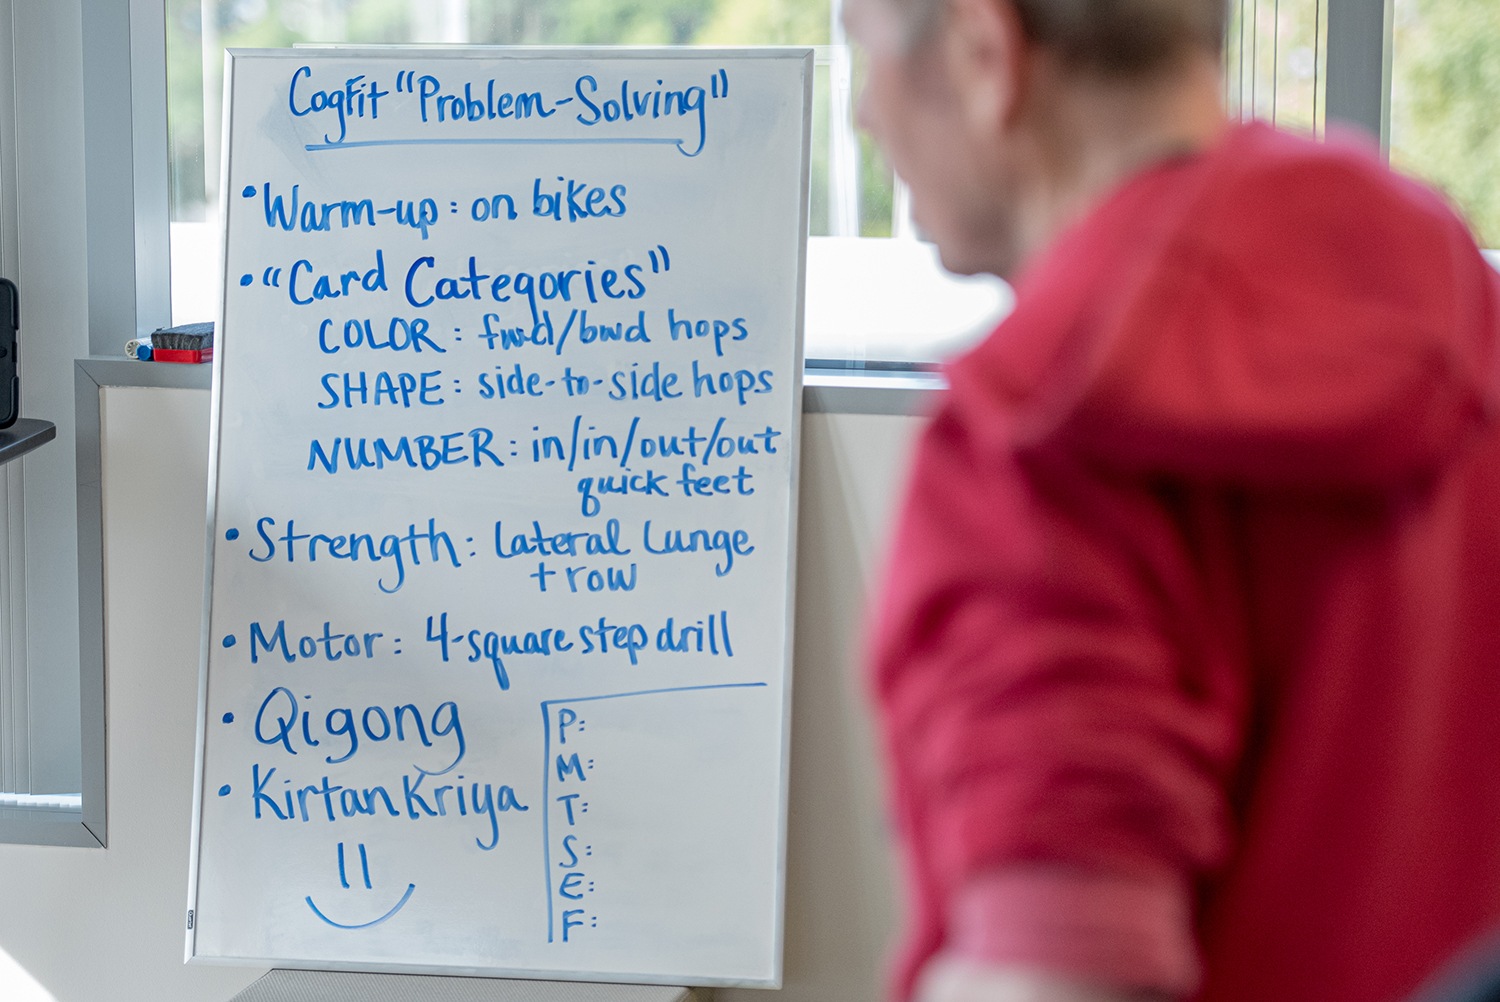 CogFit "Problem-Solving"
• Warm-up: on bikes
• "Card Categories"
COLOR: fwd/bwd hops
SHAPE: side-to-side hops
NUMBER: in/in/out/out
quick feet
• Strength: Lateral Lunge
+ row
• Motor: 4-square step drill
• Qigong
• Kirtan Kriya
P:
M:
T:
S:
E:
F: